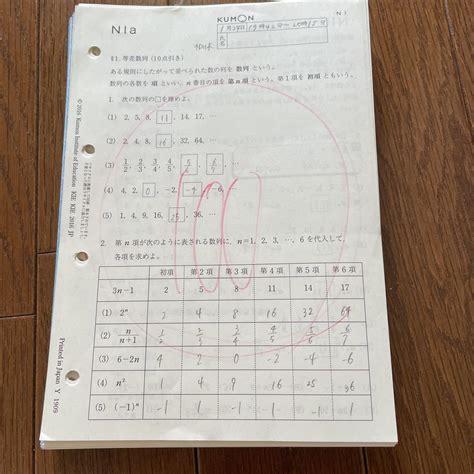 N1a
KUMON
N 1
1月28日 19時42分〜
氏名
§1. 等差数列 (10点引き)
ある規則にしたがって並べられた数の列を 数列 という。
数列の各数を 項 といい, n番目の項を 第n項 という。第1項を 初項 ともいう。
1. 次の数列の□を埋めよ。
(1) 2, 5, 8, 11, 14, 17, …
(2) 2, 4, 8, 16, 32, 64, …
(3) 1/2, 2/3, 3/4, 4/5, 5/6, 6/7, …
(4) 4, 2, 0, -2, -4, -6, …
(5) 1, 4, 9, 16, 25, 36, …
100
2. 第n項が次のように表される数列に, n=1, 2, 3, …, 6 を代入して,
各項を求めよ。
初項 第2項 第3項 第4項 第5項 第6項
3n-1 2 5 8 11 14 17
(1) 2ⁿ 2 4 8 16 32 64
(2) n/(n+1) 1/2 2/3 3/4 4/5 5/6 6/7
(3) 6-2n 4 2 0 -2 -4 -6
(4) n² 1 4 9 16 25 36
(5) (-1)ⁿ -1 1 -1 1 -1 1
© 2016 Kumon Institute of Education KIE KIE 2016 JP
Printed in Japan Y 1909